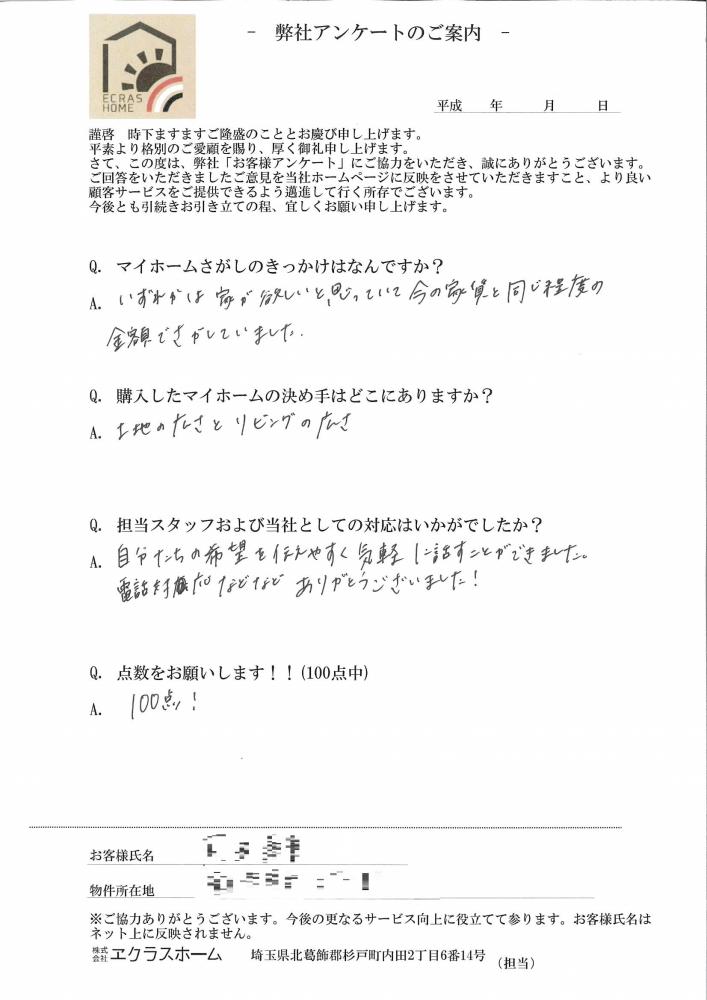 ECRAS
HOME
- 弊社アンケートのご案内 -
平成 年 月 日
謹啓 時下ますますご隆盛のこととお慶び申し上げます。
平素より格別のご愛顧を賜り、厚く御礼申し上げます。
さて、この度は、弊社「お客様アンケート」にご協力をいただき、誠にありがとうございます。
ご回答をいただきましたご意見を当社ホームページに反映をさせていただきますこと、より良い
顧客サービスをご提供できるよう邁進して行く所存でございます。
今後とも引続きお引き立ての程、宜しくお願い申し上げます。
Q. マイホームさがしのきっかけはなんですか？
A. いずれかは家が欲しいと思っていて今の家賃と同じ程度の
金額でさがしていました.
Q. 購入したマイホームの決め手はどこにありますか？
A. 土地の広さとリビングの広さ
Q. 担当スタッフおよび当社としての対応はいかがでしたか？
A. 自分たちの希望を伝えやすく気軽に話すことができました。
電話対応などなどありがとうございました！
Q. 点数をお願いします！！(100点中)
A. 100点！
お客様氏名
物件所在地
※ご協力ありがとうございます。今後の更なるサービス向上に役立てて参ります。お客様氏名は
ネット上に反映されません。
株式会社 ヱクラスホーム 埼玉県北葛飾郡杉戸町内田2丁目6番14号 （担当）